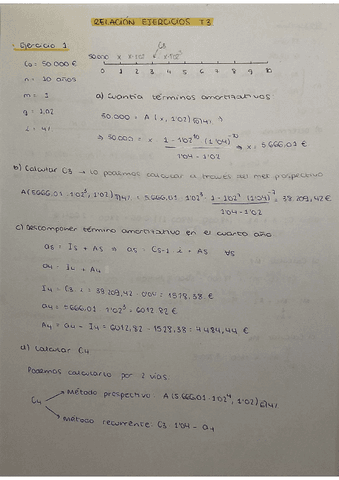 RELACIÓN EJERCICIOS T3
· Ejercicio 1
C3
C0 = 50.000 €
50.000 x x·1'02 x·1'02²
0 1 2 3 4 5 6 7 8 9 10
n = 10 años
m = 1
a) Cuantía términos amortizativos
q = 1,02
50.000 = A (x, 1'02)
i = 4%
⇒ 50.000 = x · 1 - 1'02^10 (1'04)^-10 / 1'04 - 1'02 ⇒ x = 5.666,01 €
b) Calcular C3 → lo podemos calcular a través del met prospectivo
A(5666,01 · 1'02³, 1'02)7⌉4% = 5.666,01 · 1'02³ · 1 - 1'02⁷ (1'04)^-7 / 1'04 - 1'02 = 38.209,42 €
c) Descomponer término amortizativo en el cuarto año
as = Is + As → as = Cs-1 · i + As ∀s
a4 = I4 + A4
I4 = C3 · i = 38.209,42 · 0'04 = 1528,38 €
a4 = 5666,01 · 1'02³ = 6012,82 €
A4 = a4 - I4 = 6012,82 - 1528,38 = 4484,44 €
d) Calcular C4
Podemos calcularlo por 2 vías.
Método prospectivo: A (5.666,01 · 1'02⁴, 1'02)6⌉4%
C4
Método recurrente: C3 · 1'04 - a4